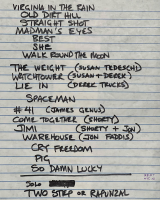 VIRGINIA IN THE RAIN
OLD DIRT HILL
STRAIGHT SHOT
MADMAN'S EYES
BEST
SHE
WALK ROUND THE MOON
THE WEIGHT (SUSAN TEDESCHI)
WATCHTOWER (SUSAN + DEREK)
LIE IN (DEREK TRUCKS)
SPACEMAN
#41 (JAMES GENUS)
COME TOGETHER (SHORTY)
JIMI (SHORTY + JON)
WAREHOUSE (JON FADDIS)
CRY FREEDOM
PIG
SO DAMN LUCKY
SOLO
TWO STEP OR RAPUNZAL